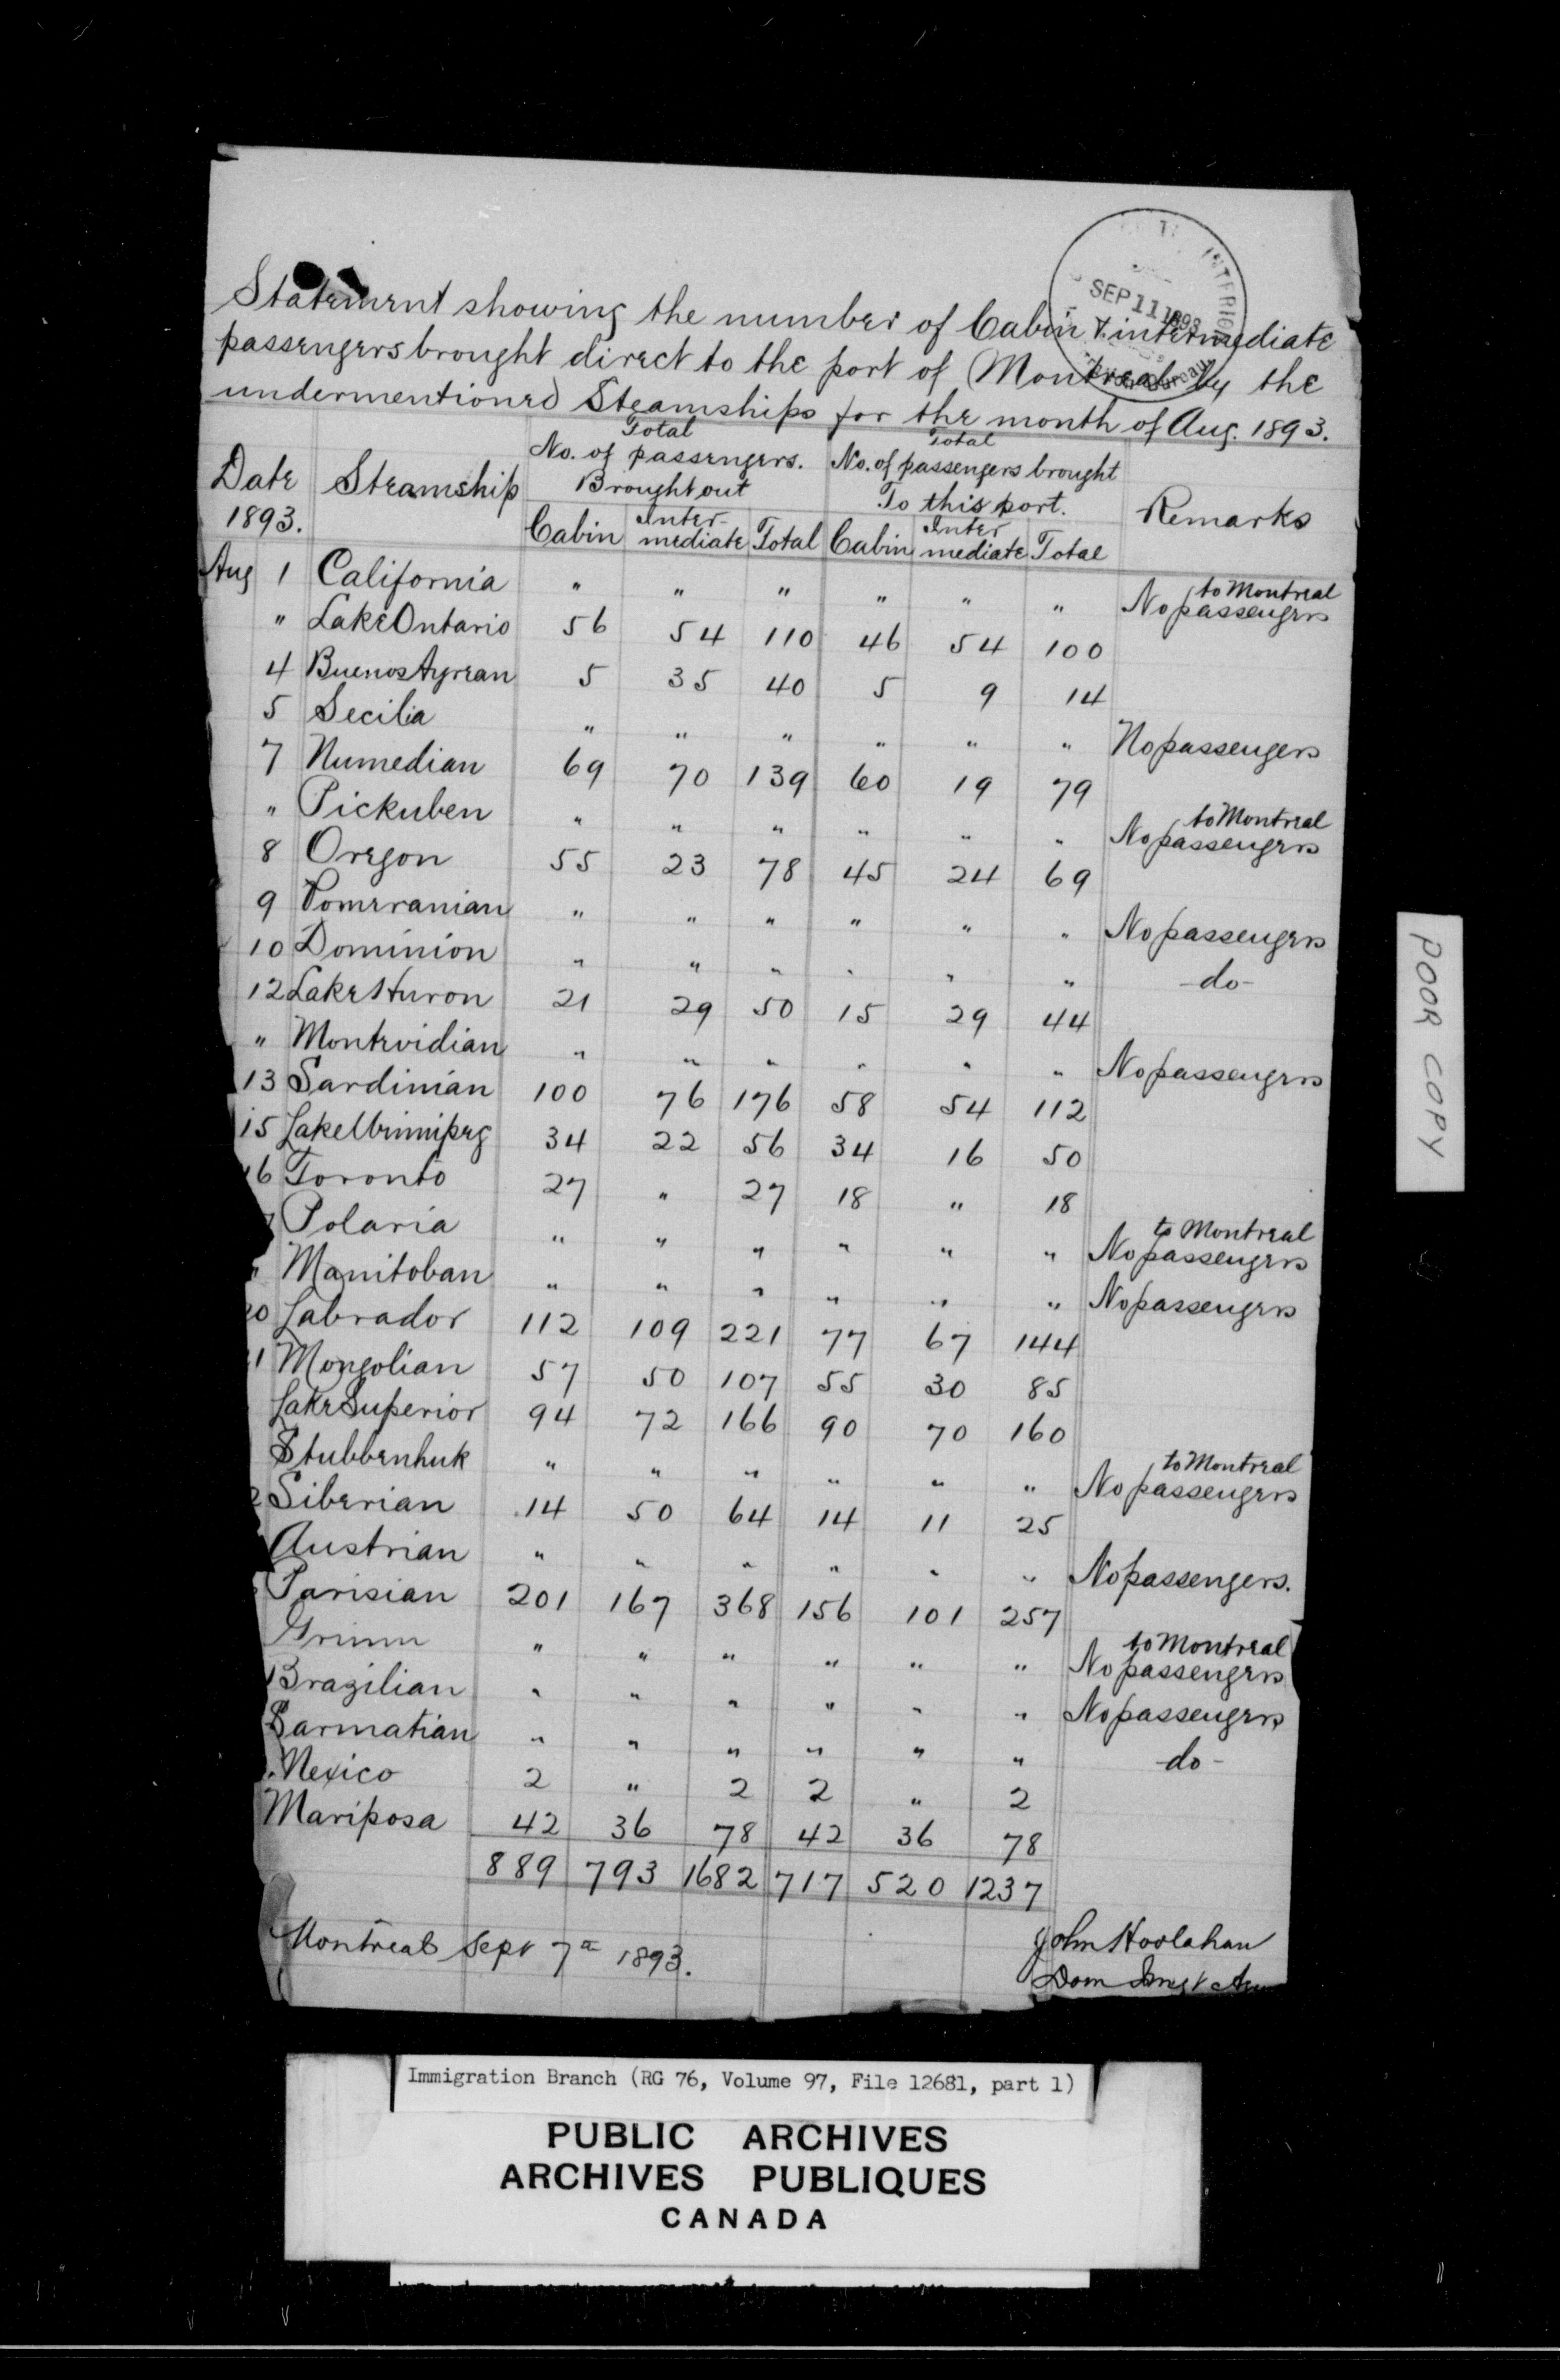 INTERIOR
SEP 11 1893
Statement showing the number of Cabin & intermediate
passengers brought direct to the port of Montreal by the
undermentioned Steamships for the month of Aug. 1893.
Date 1893. Steamship Total No. of passengers. Brought out Total No. of passengers brought To this port. Remarks
Cabin Inter-mediate Total Cabin Inter mediate Total
Aug 1 California " " " " " " No passengers to Montreal
" Lake Ontario 56 54 110 46 54 100
4 Buenos Ayrean 5 35 40 5 9 14
5 Secilia " " " " " " No passengers
7 Numedian 69 70 139 60 19 79
" Pickuben " " " " " " No passengers to Montreal
8 Oregon 55 23 78 45 24 69
9 Pomeranian " " " " " " No passengers
10 Dominion " " " " " " -do-
12 Lake Huron 21 29 50 15 29 44
" Montevidian " " " " " " No passengers
13 Sardinian 100 76 176 58 54 112
15 Lake Winnipeg 34 22 56 34 16 50
16 Toronto 27 " 27 18 " 18
Polaria " " " " " " No passengers to Montreal
" Manitoban " " " " " " No passengers
20 Labrador 112 109 221 77 67 144
1 Mongolian 57 50 107 55 30 85
Lake Superior 94 72 166 90 70 160
Stubbenhuk " " " " " " No passengers to Montreal
2 Siberian 14 50 64 14 11 25
Austrian " " " " " " No passengers.
Parisian 201 167 368 156 101 257
Grimm " " " " " " No passengers to Montreal
Brazilian " " " " " " No passengers
Sarmatian " " " " " " -do-
Mexico 2 " 2 2 " 2
Mariposa 42 36 78 42 36 78
889 793 1682 717 520 1237
Montreal Sept 7th 1893.
John Hoolahan
Dom Imgt
POOR COPY
Immigration Branch (RG 76, Volume 97, File 12681, part 1)
PUBLIC ARCHIVES
ARCHIVES PUBLIQUES
CANADA